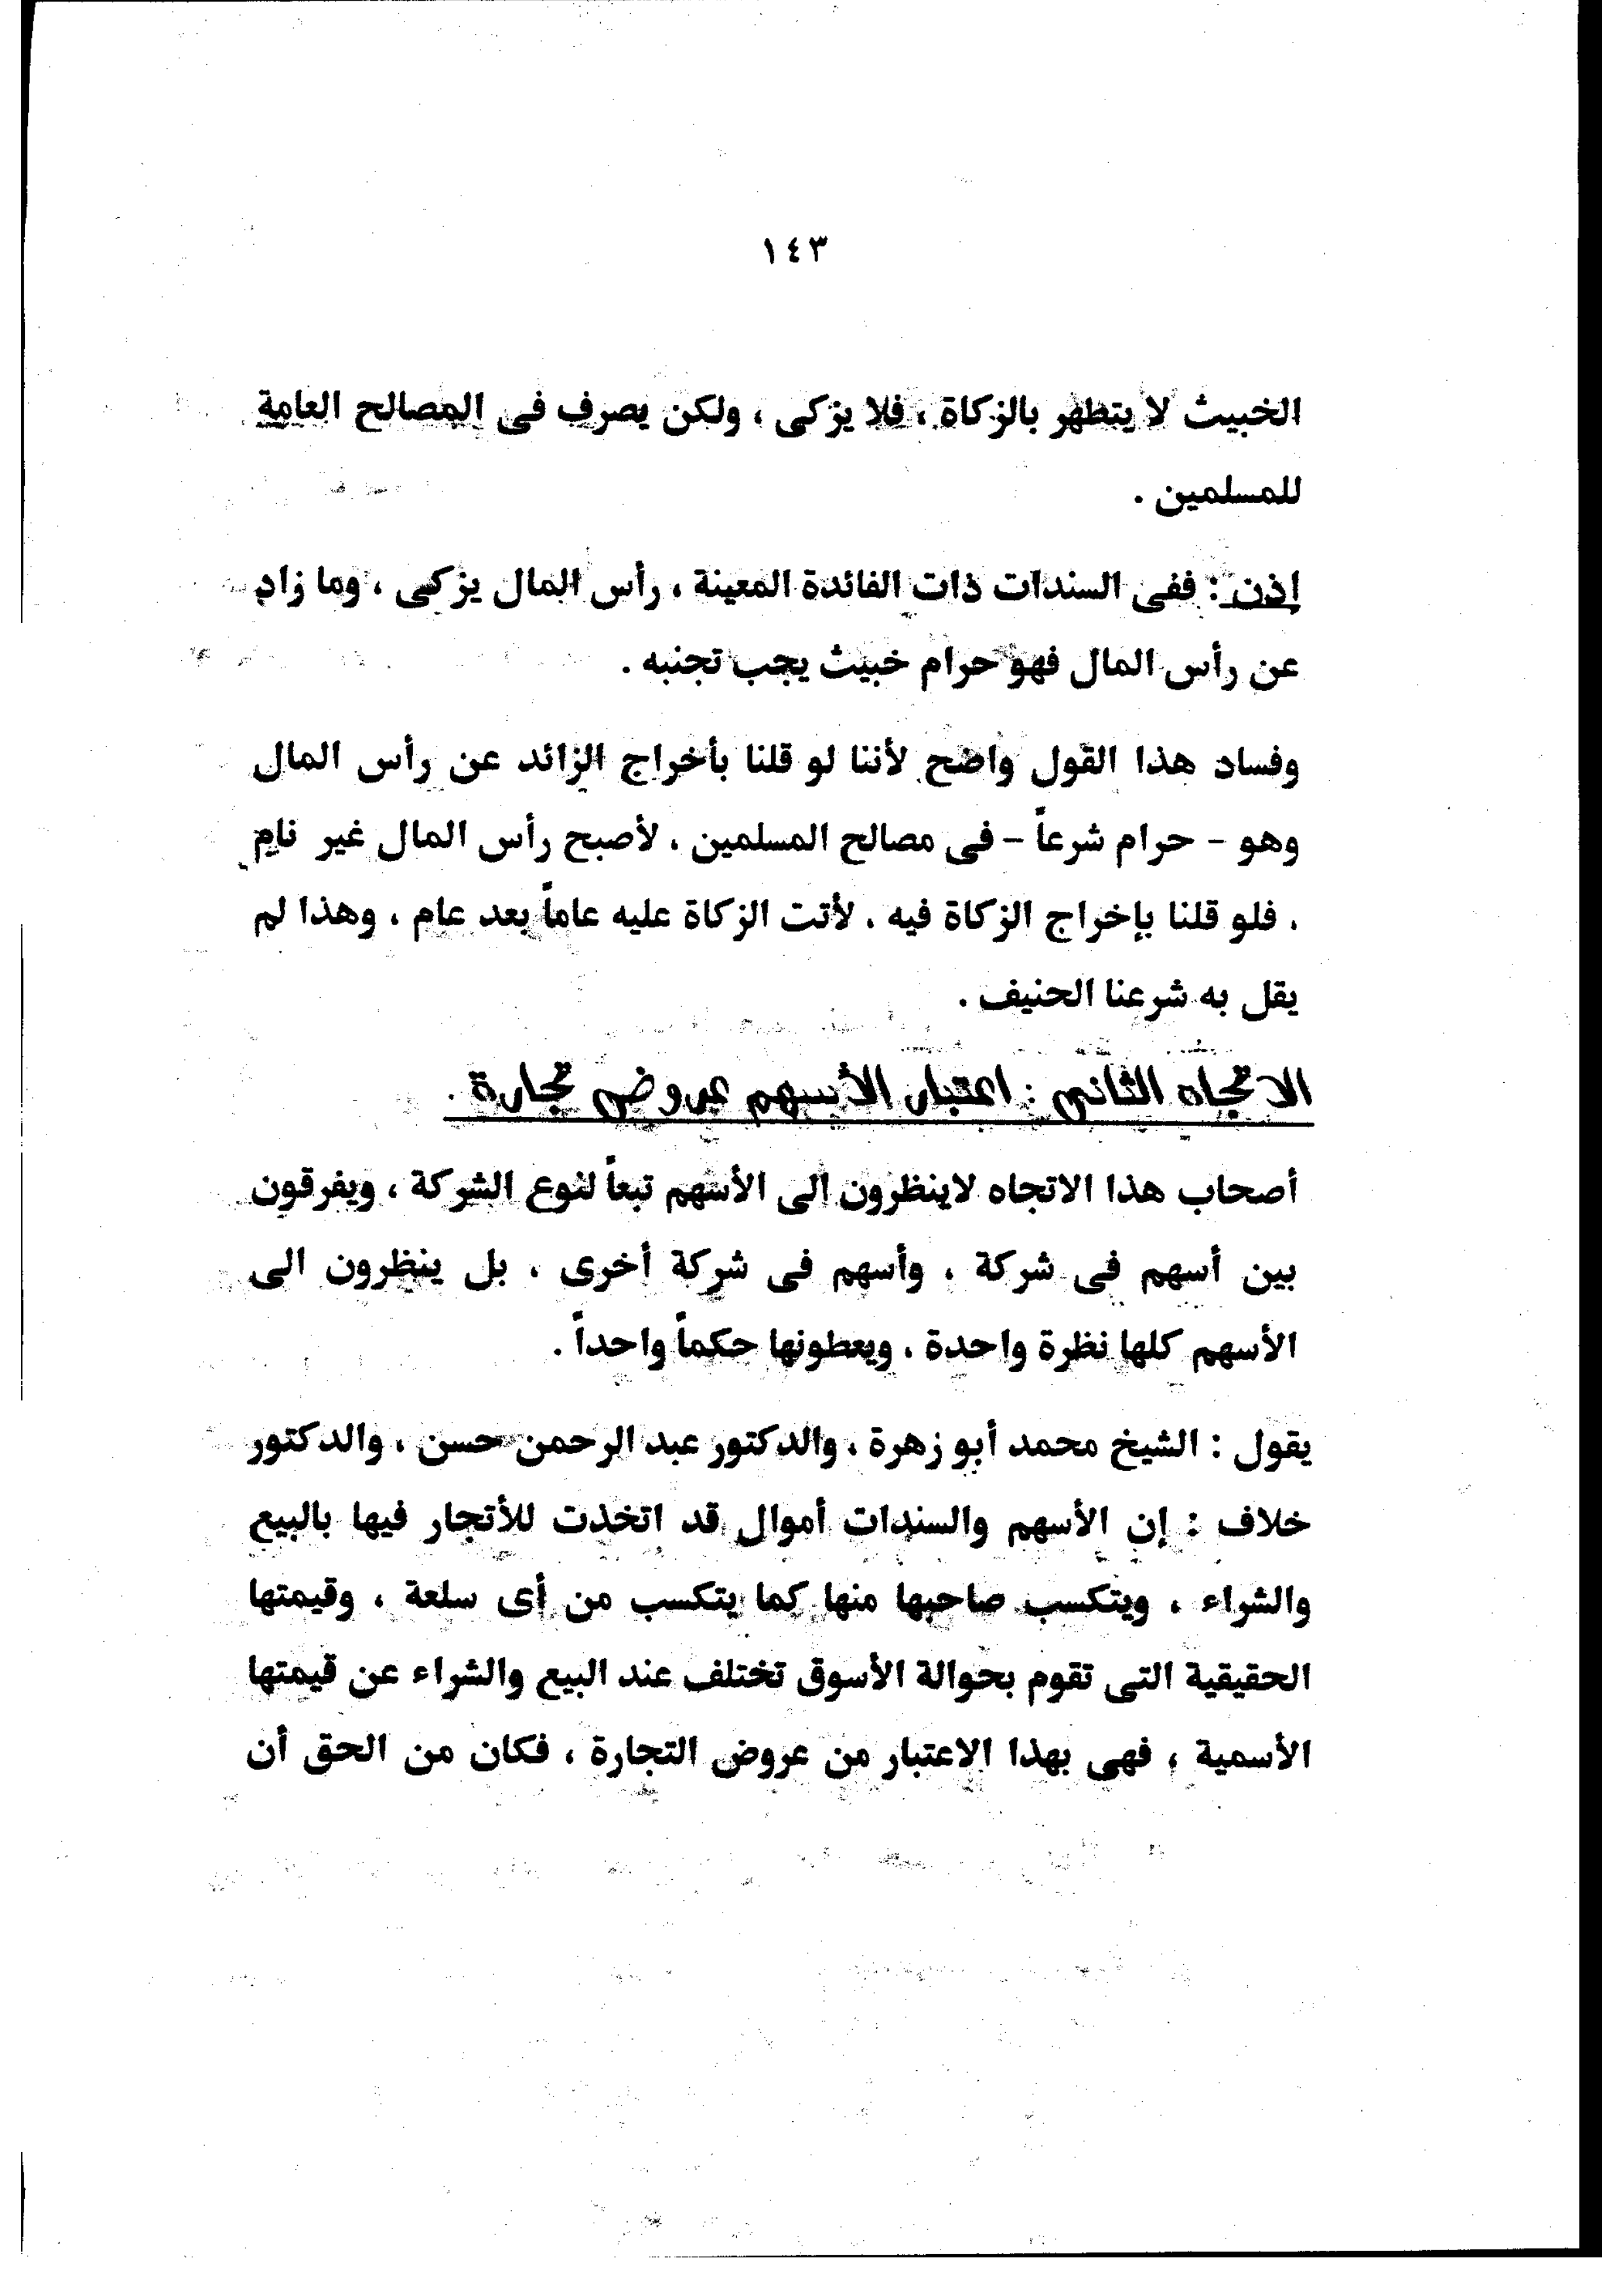 ١٤٣
الخبيث لا يتطهر بالزكاة ، فلا يزكى ، ولكن يصرف فى المصالح العامة
للمسلمين .
إذن : ففى السندات ذات الفائدة المعينة ، رأس المال يزكى ، وما زاد
عن رأس المال فهو حرام خبيث يجب تجنبه .
وفساد هذا القول واضح لأننا لو قلنا بأخراج الزائد عن رأس المال
وهو - حرام شرعاً - فى مصالح المسلمين ، لأصبح رأس المال غير نامٍ
، فلو قلنا بإخراج الزكاة فيه ، لأتت الزكاة عليه عاماً بعد عام ، وهذا لم
يقل به شرعنا الحنيف .
الاتجاه الثانى : اعتبار الأسهم عروض تجارة .
أصحاب هذا الاتجاه لاينظرون الى الأسهم تبعاً لنوع الشركة ، ويفرقون
بين أسهم فى شركة ، وأسهم فى شركة أخرى ، بل ينظرون الى
الأسهم كلها نظرة واحدة ، ويعطونها حكماً واحداً .
يقول : الشيخ محمد أبو زهرة ، والدكتور عبد الرحمن حسن ، والدكتور
خلاف : إن الأسهم والسندات أموال قد اتخذت للأتجار فيها بالبيع
والشراء ، ويتكسب صاحبها منها كما يتكسب من أى سلعة ، وقيمتها
الحقيقية التى تقوم بحوالة الأسوق تختلف عند البيع والشراء عن قيمتها
الأسمية ، فهى بهذا الاعتبار من عروض التجارة ، فكان من الحق أن